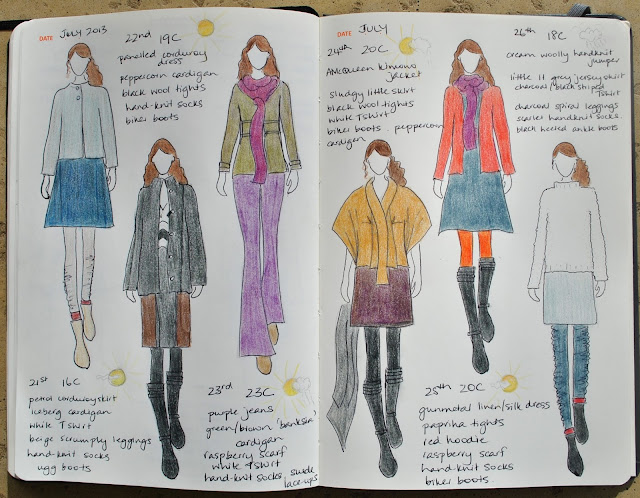 DATE JULY 2013
22nd 19C
panelled corduroy
dress
peppercorn cardigan
black wool tights
hand-knit socks
biker boots
21st 16C
petrol corduroy skirt
iceberg cardigan
white T shirt
beige scrumply leggings
hand-knit socks
ugg boots
23rd 23C
purple jeans
green/brown 'banksia'
cardigan
raspberry scarf
white T shirt
hand-knit socks, suede
lace-ups
DATE JULY
24th 20C
AMcQueen kimono
jacket
sludgy little skirt
black wool tights
white T shirt
biker boots. peppercorn
cardigan
26th 18C
cream woolly handknit
jumper
little grey jersey skirt
charcoal/black striped
T shirt
charcoal spiral leggings
scarlet handknit socks
black heeled ankle boots
25th 20C
gunmetal linen/silk dress
paprika tights
red hoodie
raspberry scarf
hand-knit socks
biker boots.